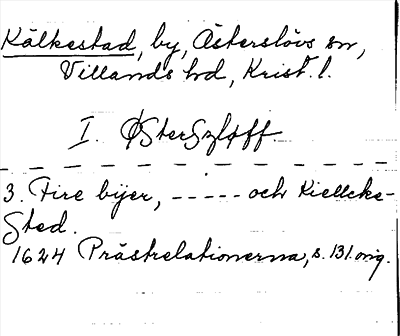 Kälkestad, by, Österslövs sn,
Villands hd, Krist. l.
I. ØSterSzløff
3. Fire byer, ----- och Kiellcke-
Sted.
1624 Prästrelationerna, s. 131 orig.